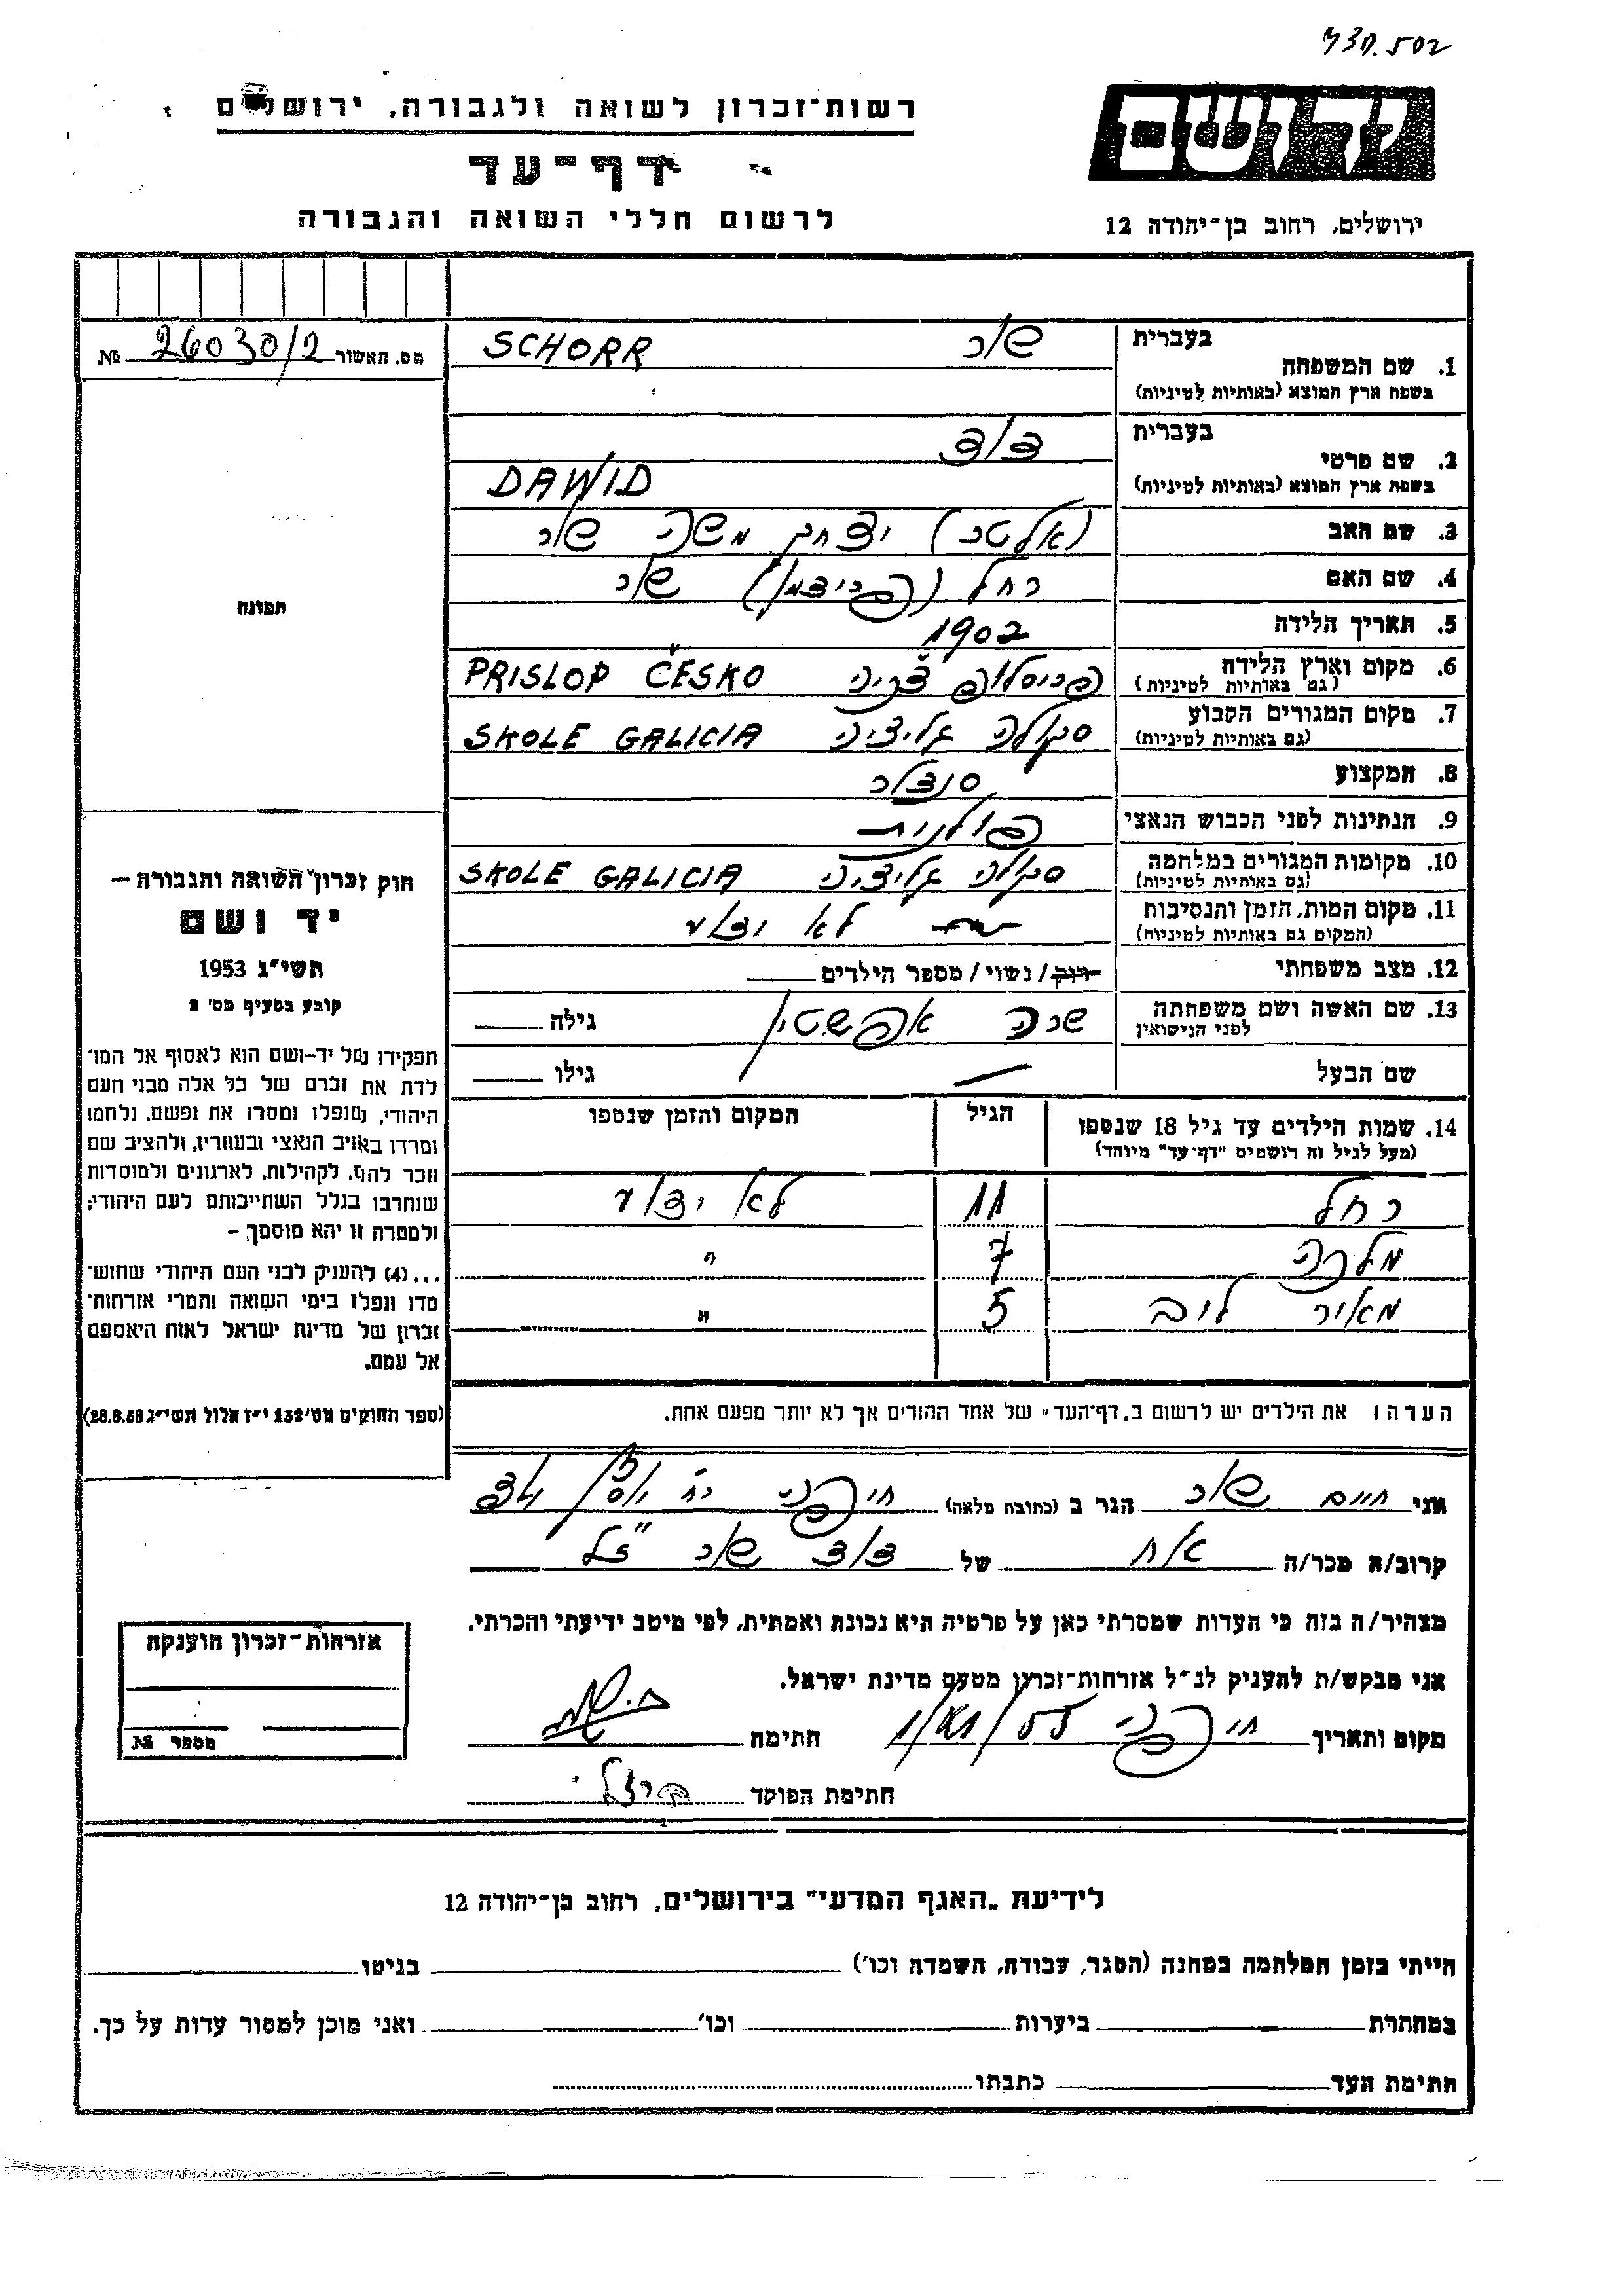 730.502
רשות־זכרון לשואה ולגבורה, ירושלים
ידושם
דף־עד
לרשום חללי השואה והגבורה
ירושלים, רחוב בן־יהודה 12
מס. תאשור 26030/2 №
תמונה
חוק זכרון השואה והגבורה —
יד ושם
תשי״ג 1953
קובע בסעיף מס׳ 2
תפקידו של יד-ושם הוא לאסוף אל המו־
לדת את זכרם של כל אלה מבני העם
היהודי, שנפלו ומסרו את נפשם, נלחמו
ומרדו באויב הנאצי ובעוזריו, ולהציב שם
וזכר להם, לקהילות, לארגונים ולמוסדות
שנחרבו בגלל השתייכותם לעם היהודי;
ולמטרה זו יהא מוסמך —
...(4) להעניק לבני העם היהודי שהוש־
מדו ונפלו בימי השואה והמרי אזרחות־
זכרון של מדינת ישראל לאות היאספם
אל עמם.
(ספר החוקים מס׳ 132 י״ז אלול תשי״ג 28.8.53)
בעברית שור SCHORR
1. שם המשפחה
בשפת ארץ המוצא (באותיות לטיניות)
בעברית דוד
2. שם פרטי
בשפת ארץ המוצא (באותיות לטיניות) DAWID
3. שם האב (אלטר) יצחק משה שור
4. שם האם רחל (פריצמן) שור
5. תאריך הלידה 1902
6. מקום וארץ הלידה פריסלופ צ׳כיה PRISLOP ČESKO
(גם באותיות לטיניות)
7. מקום המגורים הקבוע סקולה גליציה SKOLE GALICIA
(גם באותיות לטיניות)
8. המקצוע סנדלר
9. הנתינות לפני הכבוש הנאצי פולנית
10. מקומות המגורים במלחמה סקולה גליציה SKOLE GALICIA
(גם באותיות לטיניות)
11. מקום המות, הזמן והנסיבות לא ידוע
(המקום גם באותיות לטיניות)
12. מצב משפחתי רווק / נשוי / מספר הילדים
13. שם האשה ושם משפחתה שרה אפשטין גילה
לפני הנישואין
שם הבעל — גילו
14. שמות הילדים עד גיל 18 שנספו הגיל המקום והזמן שנספו
(מעל לגיל זה רושמים "דף־עד" מיוחד)
רחל 11 לא ידוע
מלכה 7 "
מאיר לוב 5 "
הערה: את הילדים יש לרשום ב„דף־העד" של אחד ההורים אך לא יותר מפעם אחת.
אני חיים שור הגר ב (כתובת מלאה) חיפה רח׳
קרוב/ה מכר/ה אח של דוד שור ז"ל
מצהיר/ה בזה כי העדות שמסרתי כאן על פרטיה היא נכונה ואמתית, לפי מיטב ידיעתי והכרתי.
אני מבקש/ת להעניק לנ״ל אזרחות־זכרון מטעם מדינת ישראל.
מקום ותאריך חיפה חתימה
חתימת הפוקד
אזרחות־זכרון הוענקה
מספר №
לידיעת „האגף המדעי" בירושלים, רחוב בן־יהודה 12
הייתי בזמן המלחמה במחנה (הסגר, עבודה, השמדה וכו׳) בגיטו
במחתרת ביערות וכו׳ ואני מוכן למסור עדות על כך.
חתימת העד כתבתו